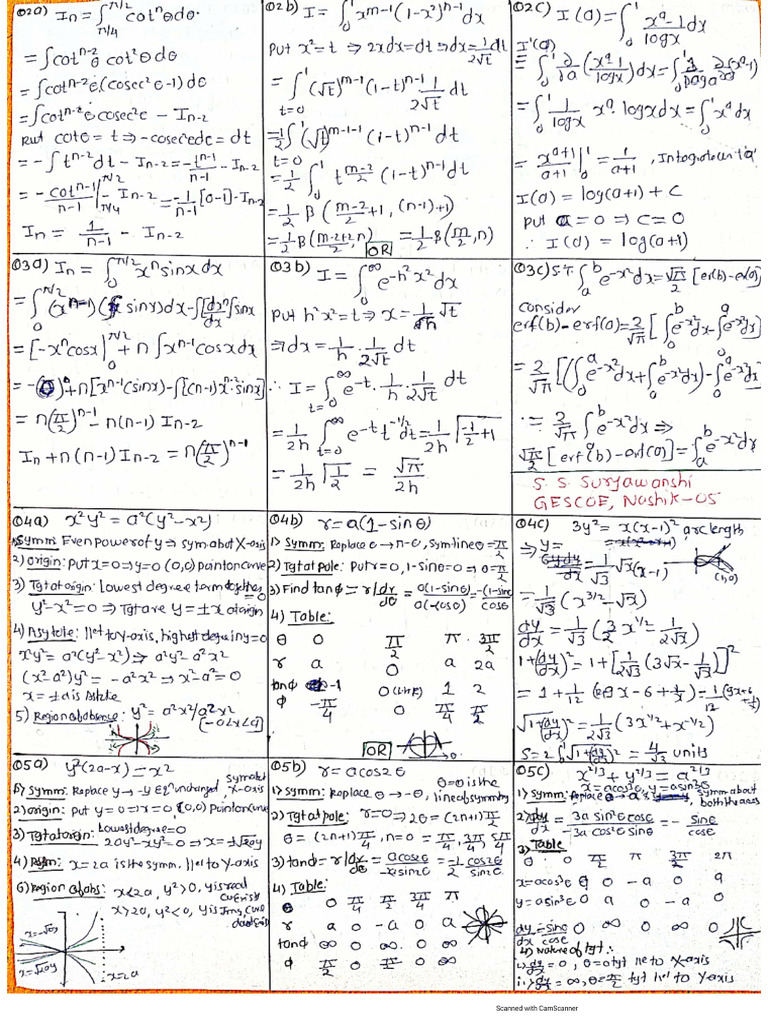 Q2a) In = ∫π/4^π/2 cotⁿθdθ.
= ∫cotⁿ⁻²θ cot²θ dθ
= ∫cotⁿ⁻²θ.(cosec²θ-1)dθ
= ∫cotⁿ⁻²θcosec²θ - In-2
Put cotθ = t ⇒ -cosec²θdθ = dt
= -∫tⁿ⁻²dt - In-2 = -tⁿ⁻¹/n-1 - In-2
= -cotⁿ⁻¹/n-1 |π/4^π/2 - In-2 = -1/n-1 [0-1] - In-2
In = 1/n-1 - In-2
Q2b) I = ∫0^1 x^m-1 (1-x²)^n-1 dx
Put x² = t ⇒ 2xdx = dt ⇒ dx = 1/2√t dt
= ∫t=0^1 (√t)^m-1 (1-t)^n-1 1/2√t dt
= 1/2 ∫t=0^1 (√t)^m-1-1 (1-t)^n-1 dt
= 1/2 ∫0^1 t^m-2/2 (1-t)^n-1 dt
= 1/2 β(m-2/2 +1, (n-1)+1)
= 1/2 β(m-2+2/2, n) = 1/2 β(m/2, n)
OR
Q2c) I(a) = ∫0^1 xᵃ-1/logx dx
I'(a)
= ∫0^1 ∂/∂a (xᵃ-1/logx) dx = ∫0^1 1/logx ∂/∂a (xᵃ-1)
= ∫0^1 1/logx xᵃ.logx dx = ∫0^1 xᵃdx
= xᵃ⁺¹/a+1 |0^1 = 1/a+1, Integrate w.r.t 'a'
I(a) = log(a+1) + C
Put a = 0 ⇒ C = 0
∴ I(a) = log(a+1)
Q3a) In = ∫0^π/2 xⁿ sinx dx
= [-xⁿcosx]0^π/2 + n∫xⁿ⁻¹cosx dx
= n(π/2)ⁿ⁻¹ - n(n-1) In-2
In + n(n-1) In-2 = n(π/2)ⁿ⁻¹
Q3b) I = ∫0^∞ e^-h²x² dx
Put h²x² = t ⇒ x = 1/h √t
⇒ dx = 1/h . 1/2√t dt
∴ I = ∫t=0^∞ e^-t . 1/h . 1/2√t dt
= 1/2h ∫t=0^∞ e^-t t^-1/2 dt = 1/2h Γ-1/2+1
= 1/2h Γ1/2 = √π/2h
Q3c) S.T ∫a^b e^-x² dx = √π/2 [erf(b)-erf(a)]
consider
erf(b)-erf(a) = 2/√π [∫0^b e^-x²dx - ∫0^a e^-x²dx]
= 2/√π [(∫0^a e^-x²dx + ∫a^b e^-x²dx) - ∫0^a e^-x²dx]
∴ = 2/√π ∫a^b e^-x²dx ⇒
√π/2 [erf(b)-erf(a)] = ∫a^b e^-x²dx
S. S. Suryawanshi
GESCOE, Nashik-05
Q4a) x²y² = a²(y²-x²)
1) Symm: Even power of y ⇒ sym about X-axis
2) origin: Put x=0 ⇒ y=0 (0,0) point on curve
3) Tgt at origin: Lowest degree term together = 0
y²-x² = 0 ⇒ Tgt are y = ±x at origin
4) Asytote: llel to Y-axis, highest deg in y = 0
x²y² = a²(y²-x²) ⇒ a²y²-a²x²
(x²-a²)y² = -a²x² ⇒ x²-a² = 0
x = ±a is
5) Region of absence: y² = a²x²/a²-x²
Q4b) r = a(1-sinθ)
1) Symm: Replace θ → π-θ, Sym line θ = π/2
2) Tgt at pole: Put r=0, 1-sinθ = 0 ⇒ θ = π/2
3) Find tanϕ = r/dr/dθ = a(1-sinθ)/a(-cosθ) = -(1-sinθ)/cosθ
4) Table:
θ 0 π/2 π 3π/2
r a 0 a 2a
tanϕ -1 0 1 2
ϕ -π/4 0 π/4 π/2
OR
Q4c) 3y² = x(x-1)² arc length
⇒ y = 1/√3 √x(x-1)
(1,0)
= 1/√3 (x^3/2 - √x)
dy/dx = 1/√3 (3/2 x^1/2 - 1/2√x)
1+(dy/dx)² = 1+[1/2√3 (3√x - 1/√x)]²
= 1 + 1/12 (9x - 6 + 1/x) = 1/12
√1+(dy/dx)² = 1/2√3 (3x^1/2 + x^-1/2)
S = 2∫0^1 √1+(dy/dx)² = 4/√3 units
Q5a) y²(2a-x) = x²
1) Symm: Replace y → -y Eqⁿ unchanged, sym about X-axis
2) origin: Put y=0 ⇒ x=0, (0,0) point on curve
3) Tgt at origin: Lowest degree = 0
2ay²-x² = 0 ⇒ x = ±√2ay
4) Asym: x = 2a is the symm. llel to Y-axis
6) Region of abs: x<2a, y²>0, y is real
x>2a, y²<0, y is Img, curve
x=-√2ay
x=√2ay
x=2a
Q5b) r = acos2θ
1) Symm: Replace θ → -θ, θ=0 is the line of symmetry
2) Tgt at pole: r=0 ⇒ 2θ = (2n+1)π/2
θ = (2n+1)π/4, n=0 = π/4, 3π/4, 5π/4
3) tanϕ = r/dr/dθ = acos2θ/-2asin2θ = -1/2 cos2θ/sin2θ
4) Table:
θ 0 π/4 π/2 3π/4 π
r a 0 -a 0 a
tanϕ ∞ 0 ∞ 0 ∞
ϕ π/2 0 π/2 0 π/2
Q5c) x^2/3 + y^2/3 = a^2/3
x = acos³θ, y = asin³θ
1) Symm: Replace symm about both the axes
2) dy/dx = 3a sin²θcosθ/-3a cos²θsinθ = -sinθ/cosθ
3) Table
θ 0 π/2 π 3π/2 2π
x=acos³θ a 0 -a 0 a
y=asin³θ 0 a 0 -a 0
dy/dx = -sinθ/cosθ 0 ∞ 0 ∞ 0
4) nature of tgt:
i) dy/dx = 0, θ=0 tgt llel to X-axis
ii) dy/dx = ∞, θ=π/2 tgt llel to Y-axis
Scanned with CamScanner